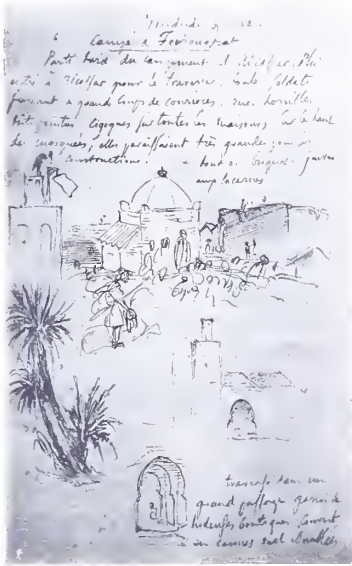 Campé a
Parti tard du campement d'Alcassar.
entré à Alcassar pour le traverser. foule soldats
frappant a grands coups de courroies. rues horribles
toits pointus cigognes sur toutes les maisons, sur le haut
des mosquées, elles paraissaient très grandes pour
constructions. tout en briques. juives
aux lucarnes
traversé dans un
grand passage garni de
hideuses boutiques couvert
en cannes mal